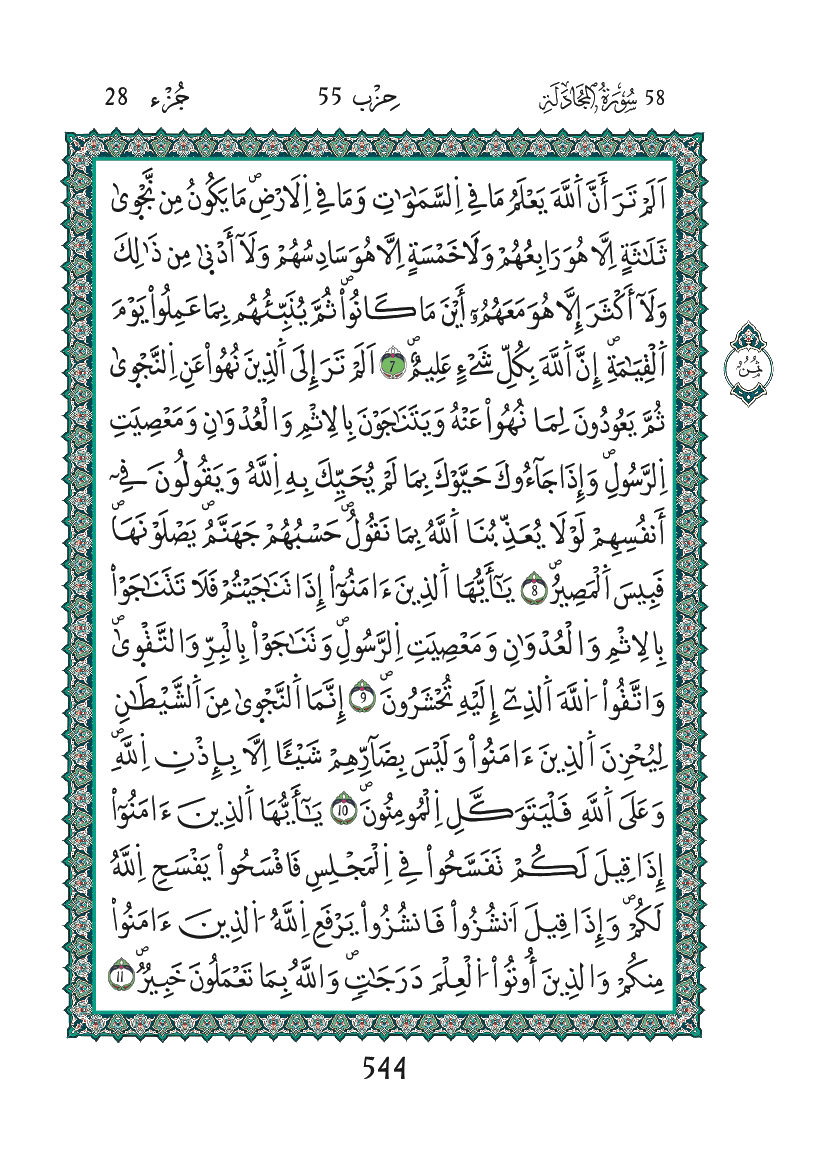 58 سُورَةُ المُجَادلَةِ حِزْب 55 جُزْء 28
اَلَمْ تَرَ أَنَّ اَللَّهَ يَعْلَمُ مَا فِي اِلسَّمَٰوَٰتِ وَمَا فِي اِلَارْضِۖ مَا يَكُونُ مِن نَّجْوۭىٰ
ثَلَٰثَةٍ اِلَّا هُوَ رَابِعُهُمْ وَلَا خَمْسَةٍ اِلَّا هُوَ سَادِسُهُمْ وَلَآ أَدْنۭىٰ مِن ذَٰلِكَ
وَلَآ أَكْثَرَ إِلَّا هُوَ مَعَهُمُۥٓ أَيْنَ مَا كَانُواْۖ ثُمَّ يُنَبِّـُٔهُم بِمَا عَمِلُواْ يَوْمَ
اَلْقِيَٰمَةِۖ إِنَّ اَللَّهَ بِكُلِّ شَےْءٍ عَلِيمٌۖ 7 اَلَمْ تَرَ إِلَى اَلذِينَ نُهُواْ عَنِ اِلنَّجْوۭىٰ
ثُمَّ يَعُودُونَ لِمَا نُهُواْ عَنْهُ وَيَتَنَٰجَوْنَ بِالِاثْمِ وَالْعُدْوَٰنِ وَمَعْصِيَتِ
اِلرَّسُولِۖ وَإِذَا جَآءُوكَ حَيَّوْكَ بِمَا لَمْ يُحَيِّكَ بِهِ اِللَّهُ وَيَقُولُونَ فِےٓ
أَنفُسِهِمْ لَوْلَا يُعَذِّبُنَا اَللَّهُ بِمَا نَقُولُۖ حَسْبُهُمْ جَهَنَّمُۖ يَصْلَوْنَهَاۖ
فَبِيسَ اَلْمَصِيرُۖ 8 يَٰٓأَيُّهَا اَلذِينَ ءَامَنُوٓاْ إِذَا تَنَٰجَيْتُمْ فَلَا تَتَنَٰجَوْاْ
بِالِاثْمِ وَالْعُدْوَٰنِ وَمَعْصِيَتِ اِلرَّسُولِۖ وَتَنَٰجَوْاْ بِالْبِرِّ وَالتَّقْوۭىٰۖ
وَاتَّقُواْ اُللَّهَ اَلذِےٓ إِلَيْهِ تُحْشَرُونَۖ 9 إِنَّمَا اَلنَّجْوۭىٰ مِنَ اَلشَّيْطَٰنِ
لِيُحْزِنَ اَلذِينَ ءَامَنُواْ وَلَيْسَ بِضَآرِّهِمْ شَيْـًٔا اِلَّا بِإِذْنِ اِللَّهِۖ
وَعَلَى اَللَّهِ فَلْيَتَوَكَّلِ اِلْمُومِنُونَۖ 10 يَٰٓأَيُّهَا اَلذِينَ ءَامَنُوٓاْ
إِذَا قِيلَ لَكُمْ تَفَسَّحُواْ فِي اِلْمَجْلِسِ فَافْسَحُواْ يَفْسَحِ اِللَّهُ
لَكُمْۖ وَإِذَا قِيلَ اَنشُزُواْ فَانشُزُواْ يَرْفَعِ اِللَّهُ اُلذِينَ ءَامَنُواْ
مِنكُمْ وَالذِينَ أُوتُواْ اُلْعِلْمَ دَرَجَٰتٖۖ وَاللَّهُ بِمَا تَعْمَلُونَ خَبِيرٌۖ 11
ثُمُن
544